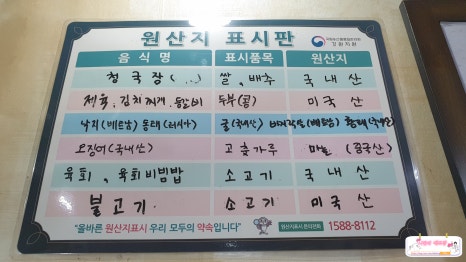 원산지 표시판
국립농산물품질관리원
강원지원
음식명 표시품목 원산지
청국장(...) 쌀, 배추 국내산
제육, 김치찌개, 등갈비 두부(콩) 미국산
낙지(베트남) 동태(러시아) 굴(국내산) (베트남) 황태
오징어(국내산) 고춧가루 마늘 (중국산)
육회, 육회비빔밥 소고기 국내산
불고기 소고기 미국산
"올바른 원산지표시 우리 모두의 약속입니다"
원산지표시 문의전화 1588-8112